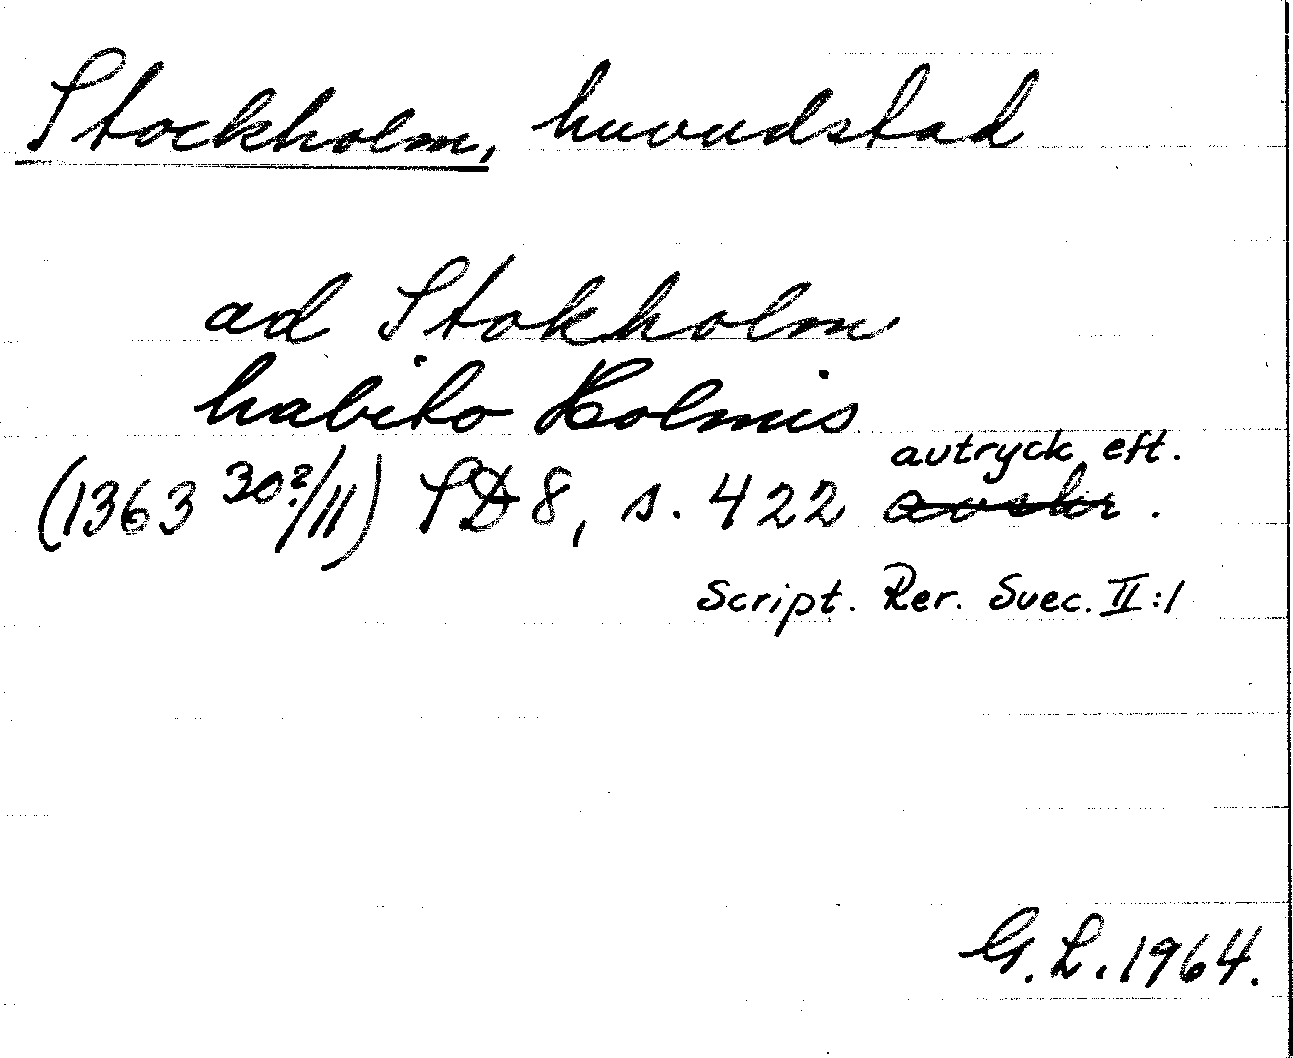 Stockholm, huvudstad
ad Stokholm
habito Holmis
avtryck eft.
(1363 30?/11) SD 8, s. 422 avskr.
Script. Rer. Suec. II:1
G. L. 1964.